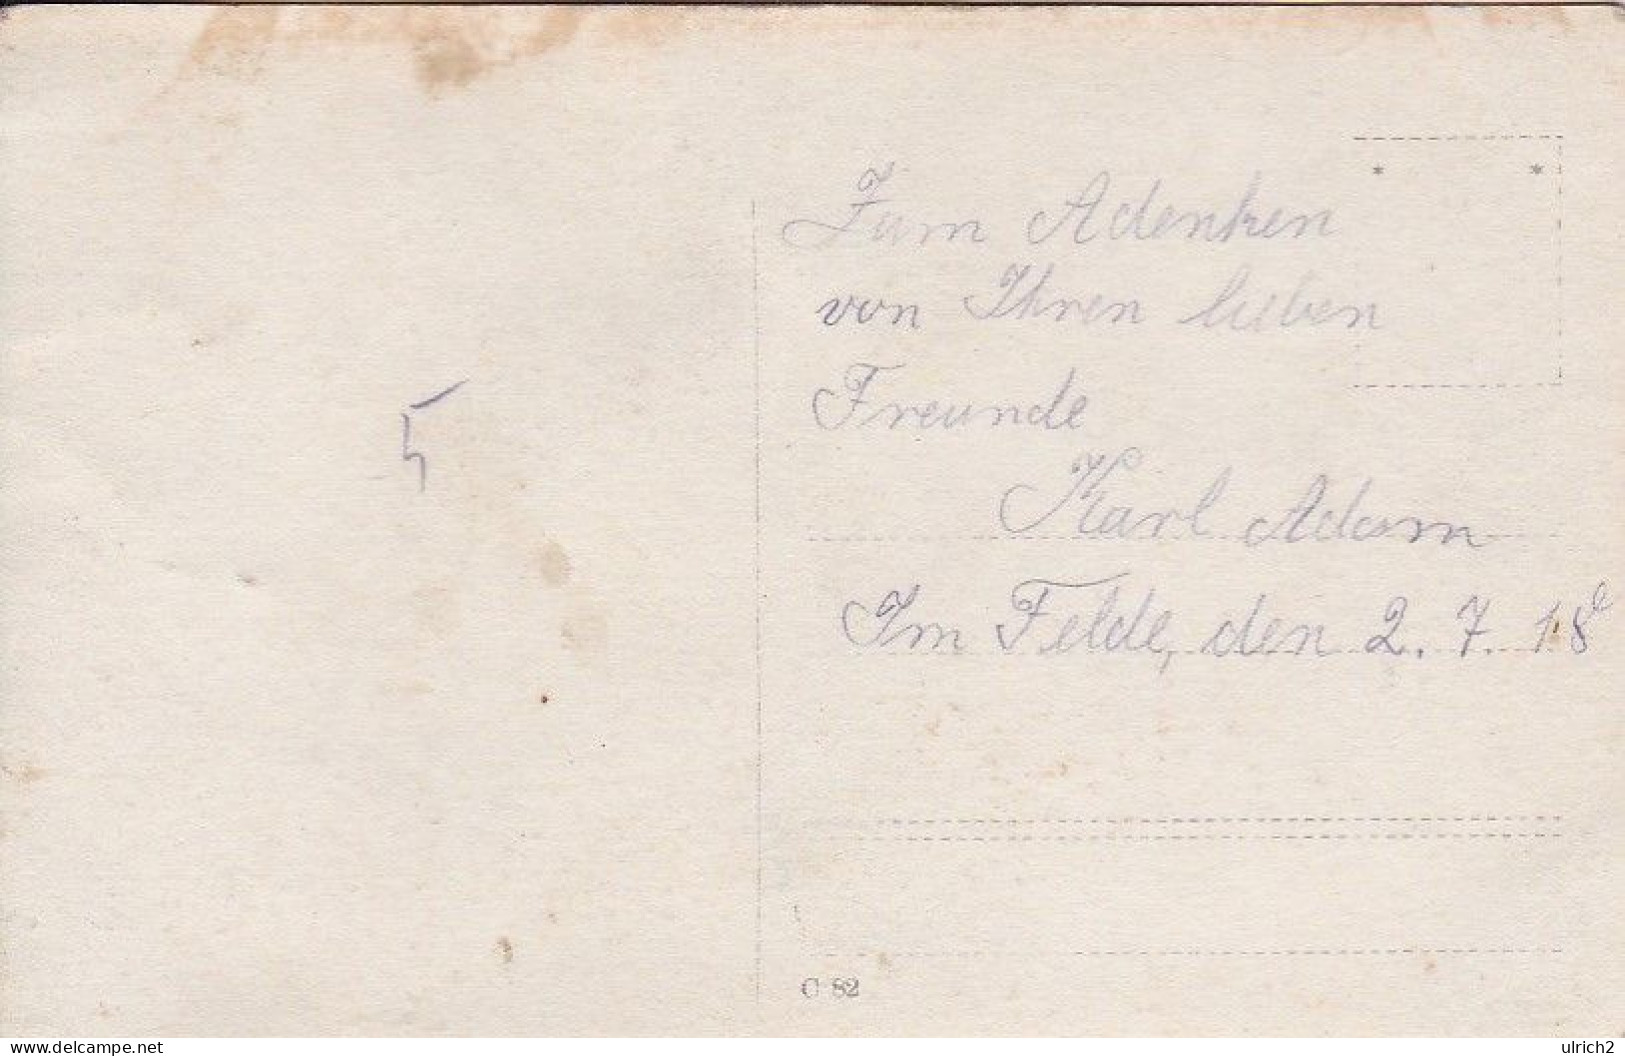 Zum Adenken
von Ihren lieben
Freunde
Karl Adam
Im Felde, den 2. 7. 18
5
C 82
www.delcampe.net
ulrich2